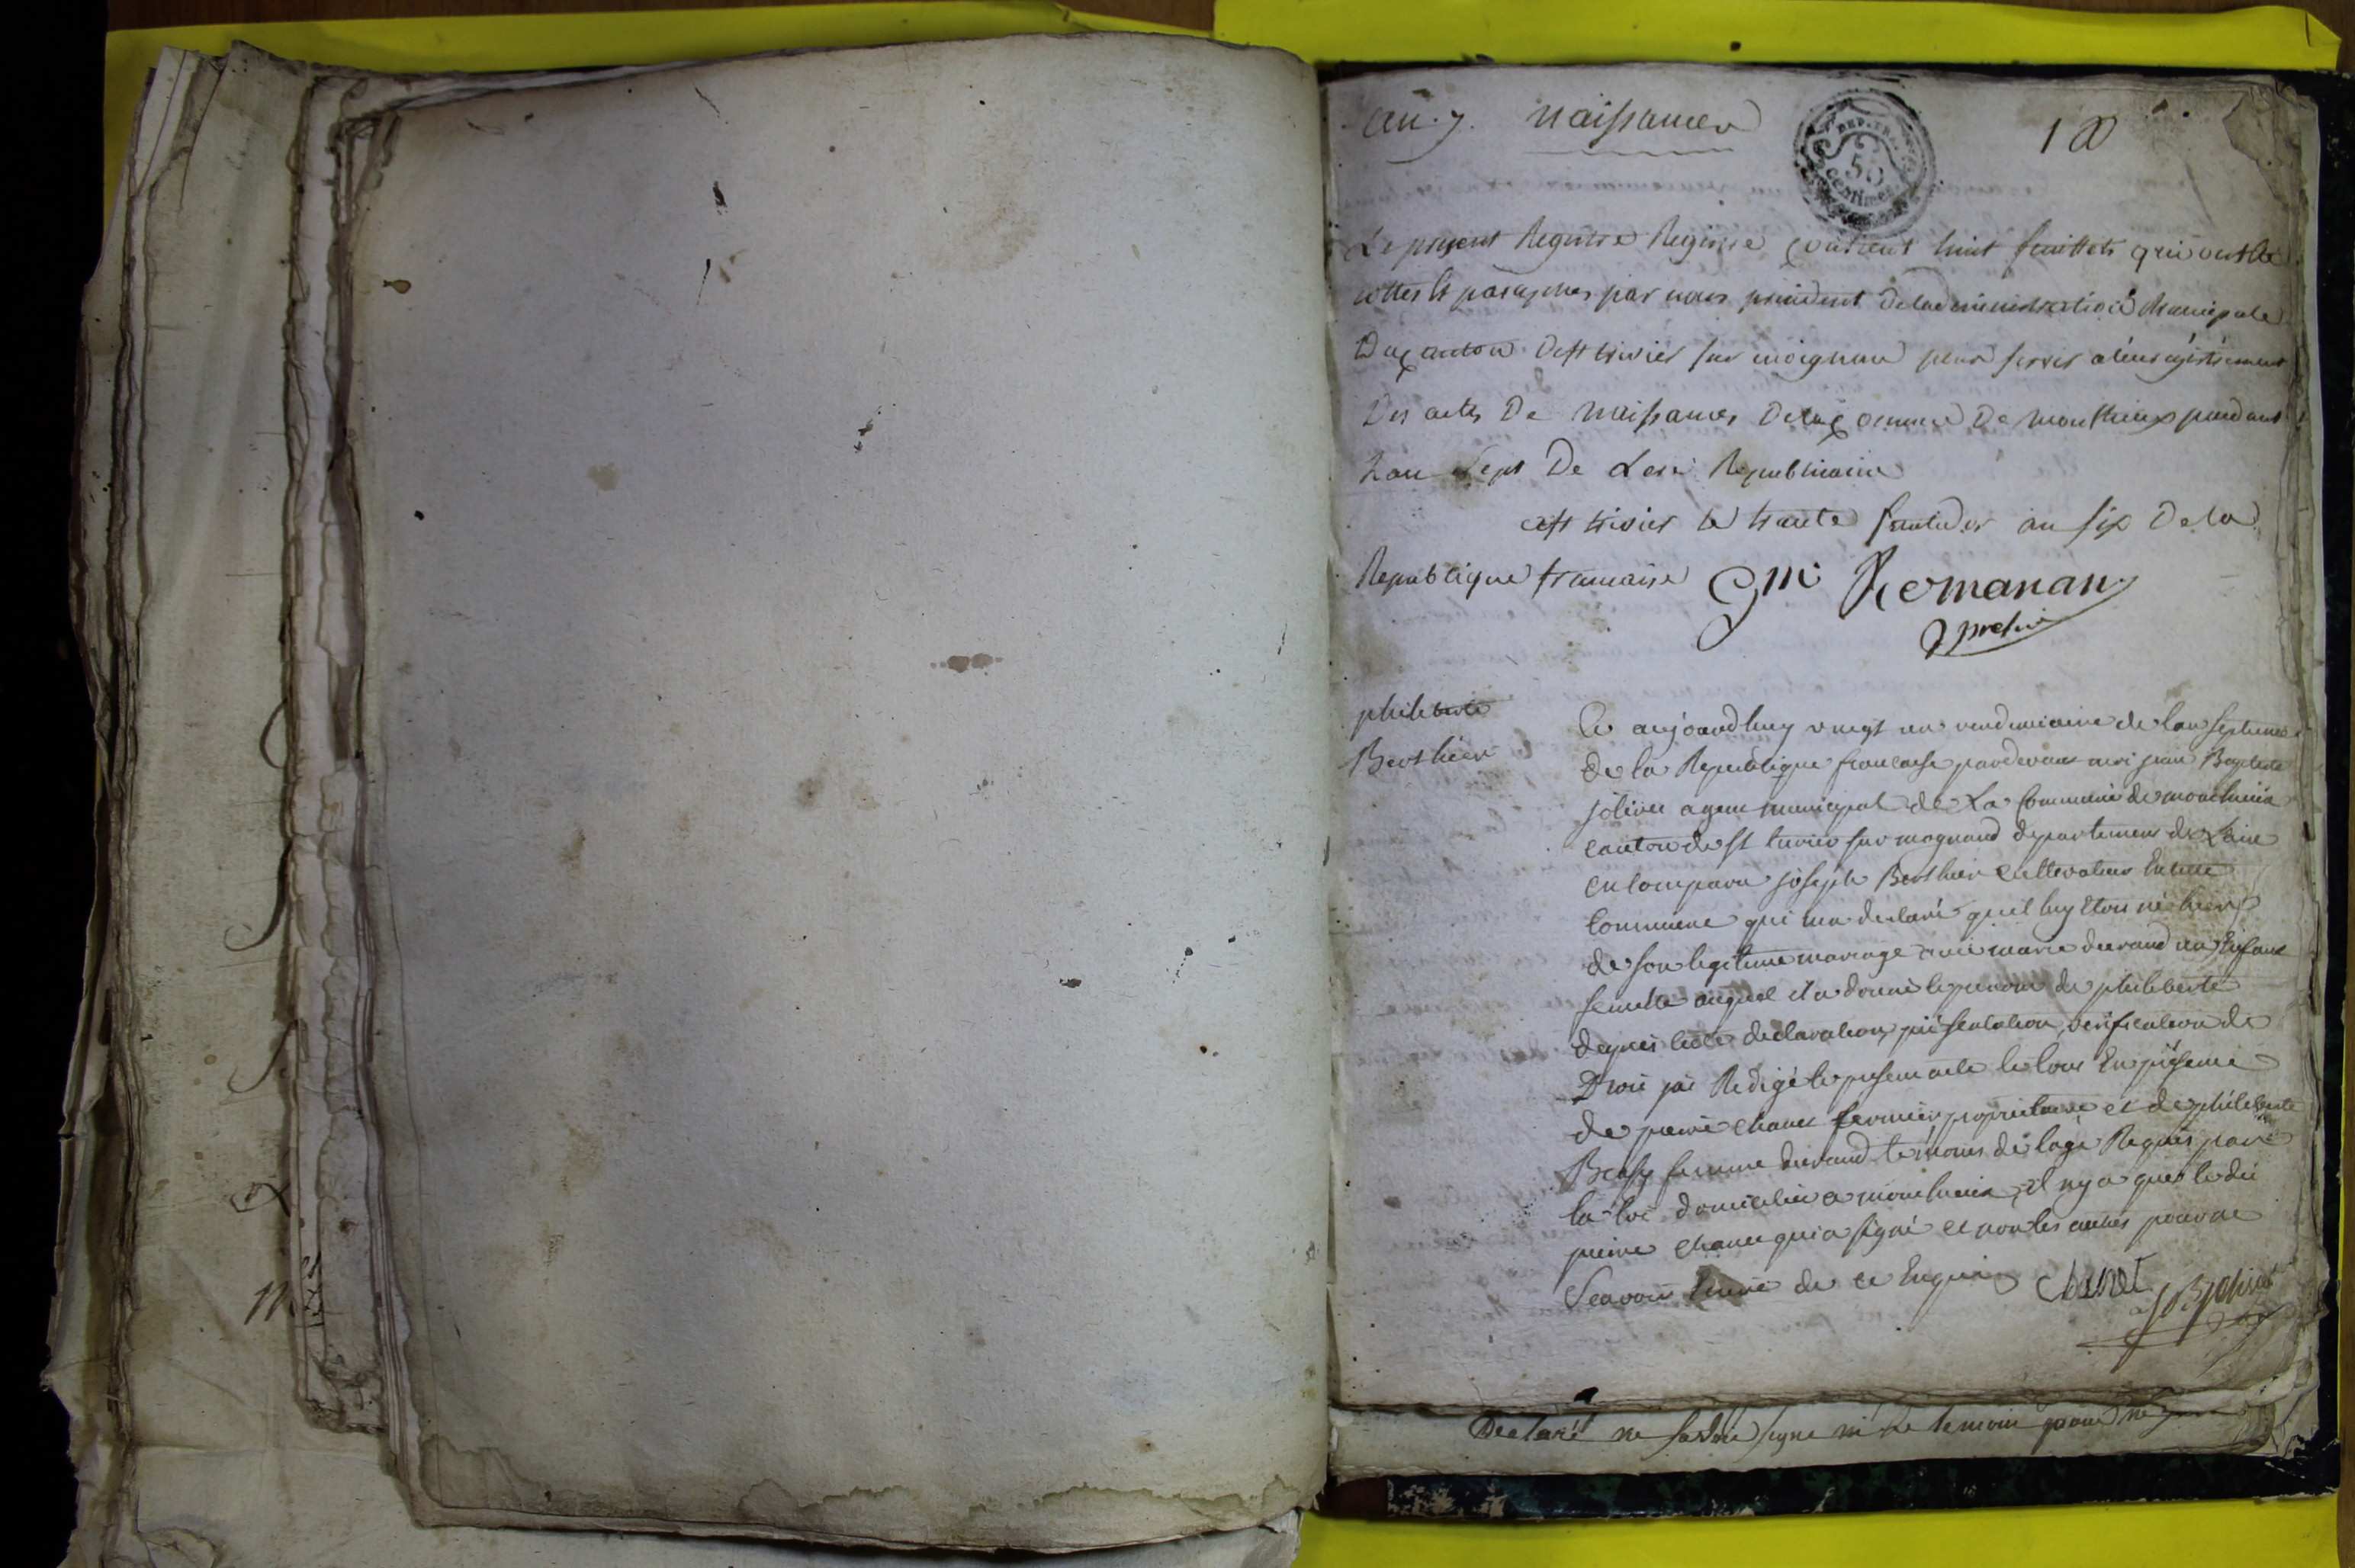 an. 7. Naissances
DEP.
50
centimes
1
Le present Registre Registre contient huit feuillets qui ont été
cottes et paraphes par nous president deladministration Municipale
Du canton Dest trivier sur moignan pour servir alenregistrement
Des actes De Naissances Dela Comune De Montheux pendant
Lan Sept De Lere Republicaine
a st trivier le trante fructidor an six De la
Republique francaise Gm Romanan
presdt
philiberte
Berthier
Ce aujourdhuy vingt un vendemiaire de lan septieme
de la Republique francaise pardevant moi jean Baptiste
jolivet agent municipal de La Commune de montheux
canton de st trivier sur mognand departement de Lain
en comparu joseph Berthier cultivateur En cette
commune qui ma declaré quil luy Etoit né hier
de son legitime mariage avec marie durand un Enfant
femelle auquel il a donné le prenom de philiberte
depres cette declaration, présentation, verification de
Droit jai Redigé le present acte le tout En présence
de pierre chanet fermier proprietaire et de philiberte
femme durand témoins de lage Requis par
la loi domicilié a montheux, il ny a que le dit
pierre chanet qui a signé et non les autres pour ne
Scavoir de ce Enquis chanet
JB Jolivet
Declaré ne savoir signe ni Le temoin pour ne